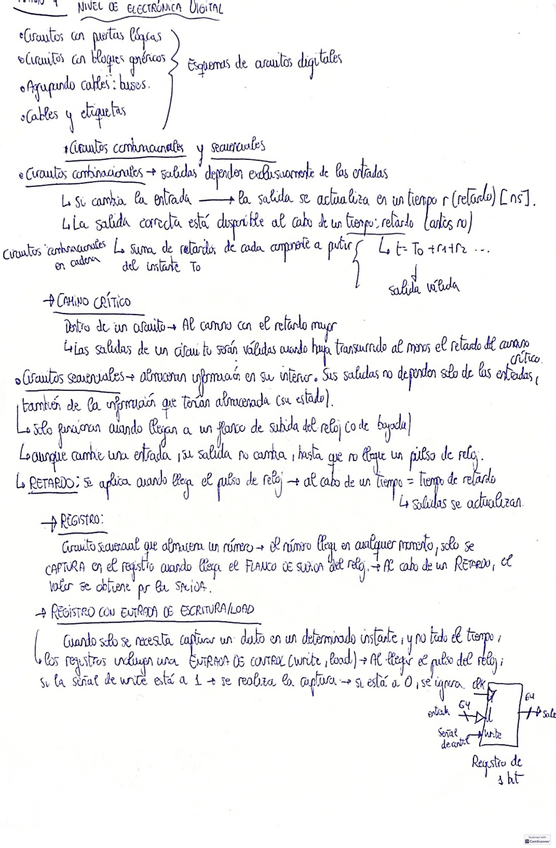 NIVEL DE ELECTRÓNICA DIGITAL
• Circuitos con puertas lógicas
• Circuitos con bloques genéricos
• Agrupando cables: buses.
• Cables y etiquetas
Esquemas de circuitos digitales
• Circuitos combinacionales y secuenciales
• Circuitos combinacionales → salidas dependen exclusivamente de las entradas
↳ Si cambia la entrada → la salida se actualiza en un tiempo r (retardo) [ns].
↳ La salida correcta está disponible al cabo de un tiempo: retardo (antes no)
Circuitos combinacionales en cadena
↳ suma de retardos de cada componente a partir
del instante T0
↳ t = T0 + r1 + r2 ...
salida válida
→ CAMINO CRÍTICO
Dentro de un circuito → Al camino con el retardo mayor
↳ Las salidas de un circuito serán válidas cuando haya transcurrido al menos el retardo del camino
crítico.
• Circuitos secuenciales → almacenan información en su interior. Sus salidas no dependen solo de las entradas,
también de la información que tenían almacenada (su estado).
↳ Solo funcionan cuando llegan a un flanco de subida del reloj (o de bajada)
↳ aunque cambie una entrada, su salida no cambia, hasta que no llegue un pulso de reloj.
↳ RETARDO: se aplica cuando llega el pulso de reloj → al cabo de un tiempo = tiempo de retardo
↳ salidas se actualizan.
→ REGISTRO:
Circuito secuencial que almacena un número → el número llega en cualquier momento, solo se
CAPTURA en el registro cuando llega el FLANCO DE SUBIDA del reloj. → Al cabo de un RETARDO, el
valor se obtiene por la SALIDA.
→ REGISTRO CON ENTRADA DE ESCRITURA/LOAD
Cuando solo se necesita capturar un dato en un determinado instante, y no todo el tiempo,
los registros incluyen una ENTRADA DE CONTROL (write, load) → Al llegar el pulso del reloj;
si la señal de write está a 1 → se realiza la captura → si está a 0, se ignora
clk
64
entrada 64 d
sale
Señal de control write
Registro de
1 bit
CamScanner